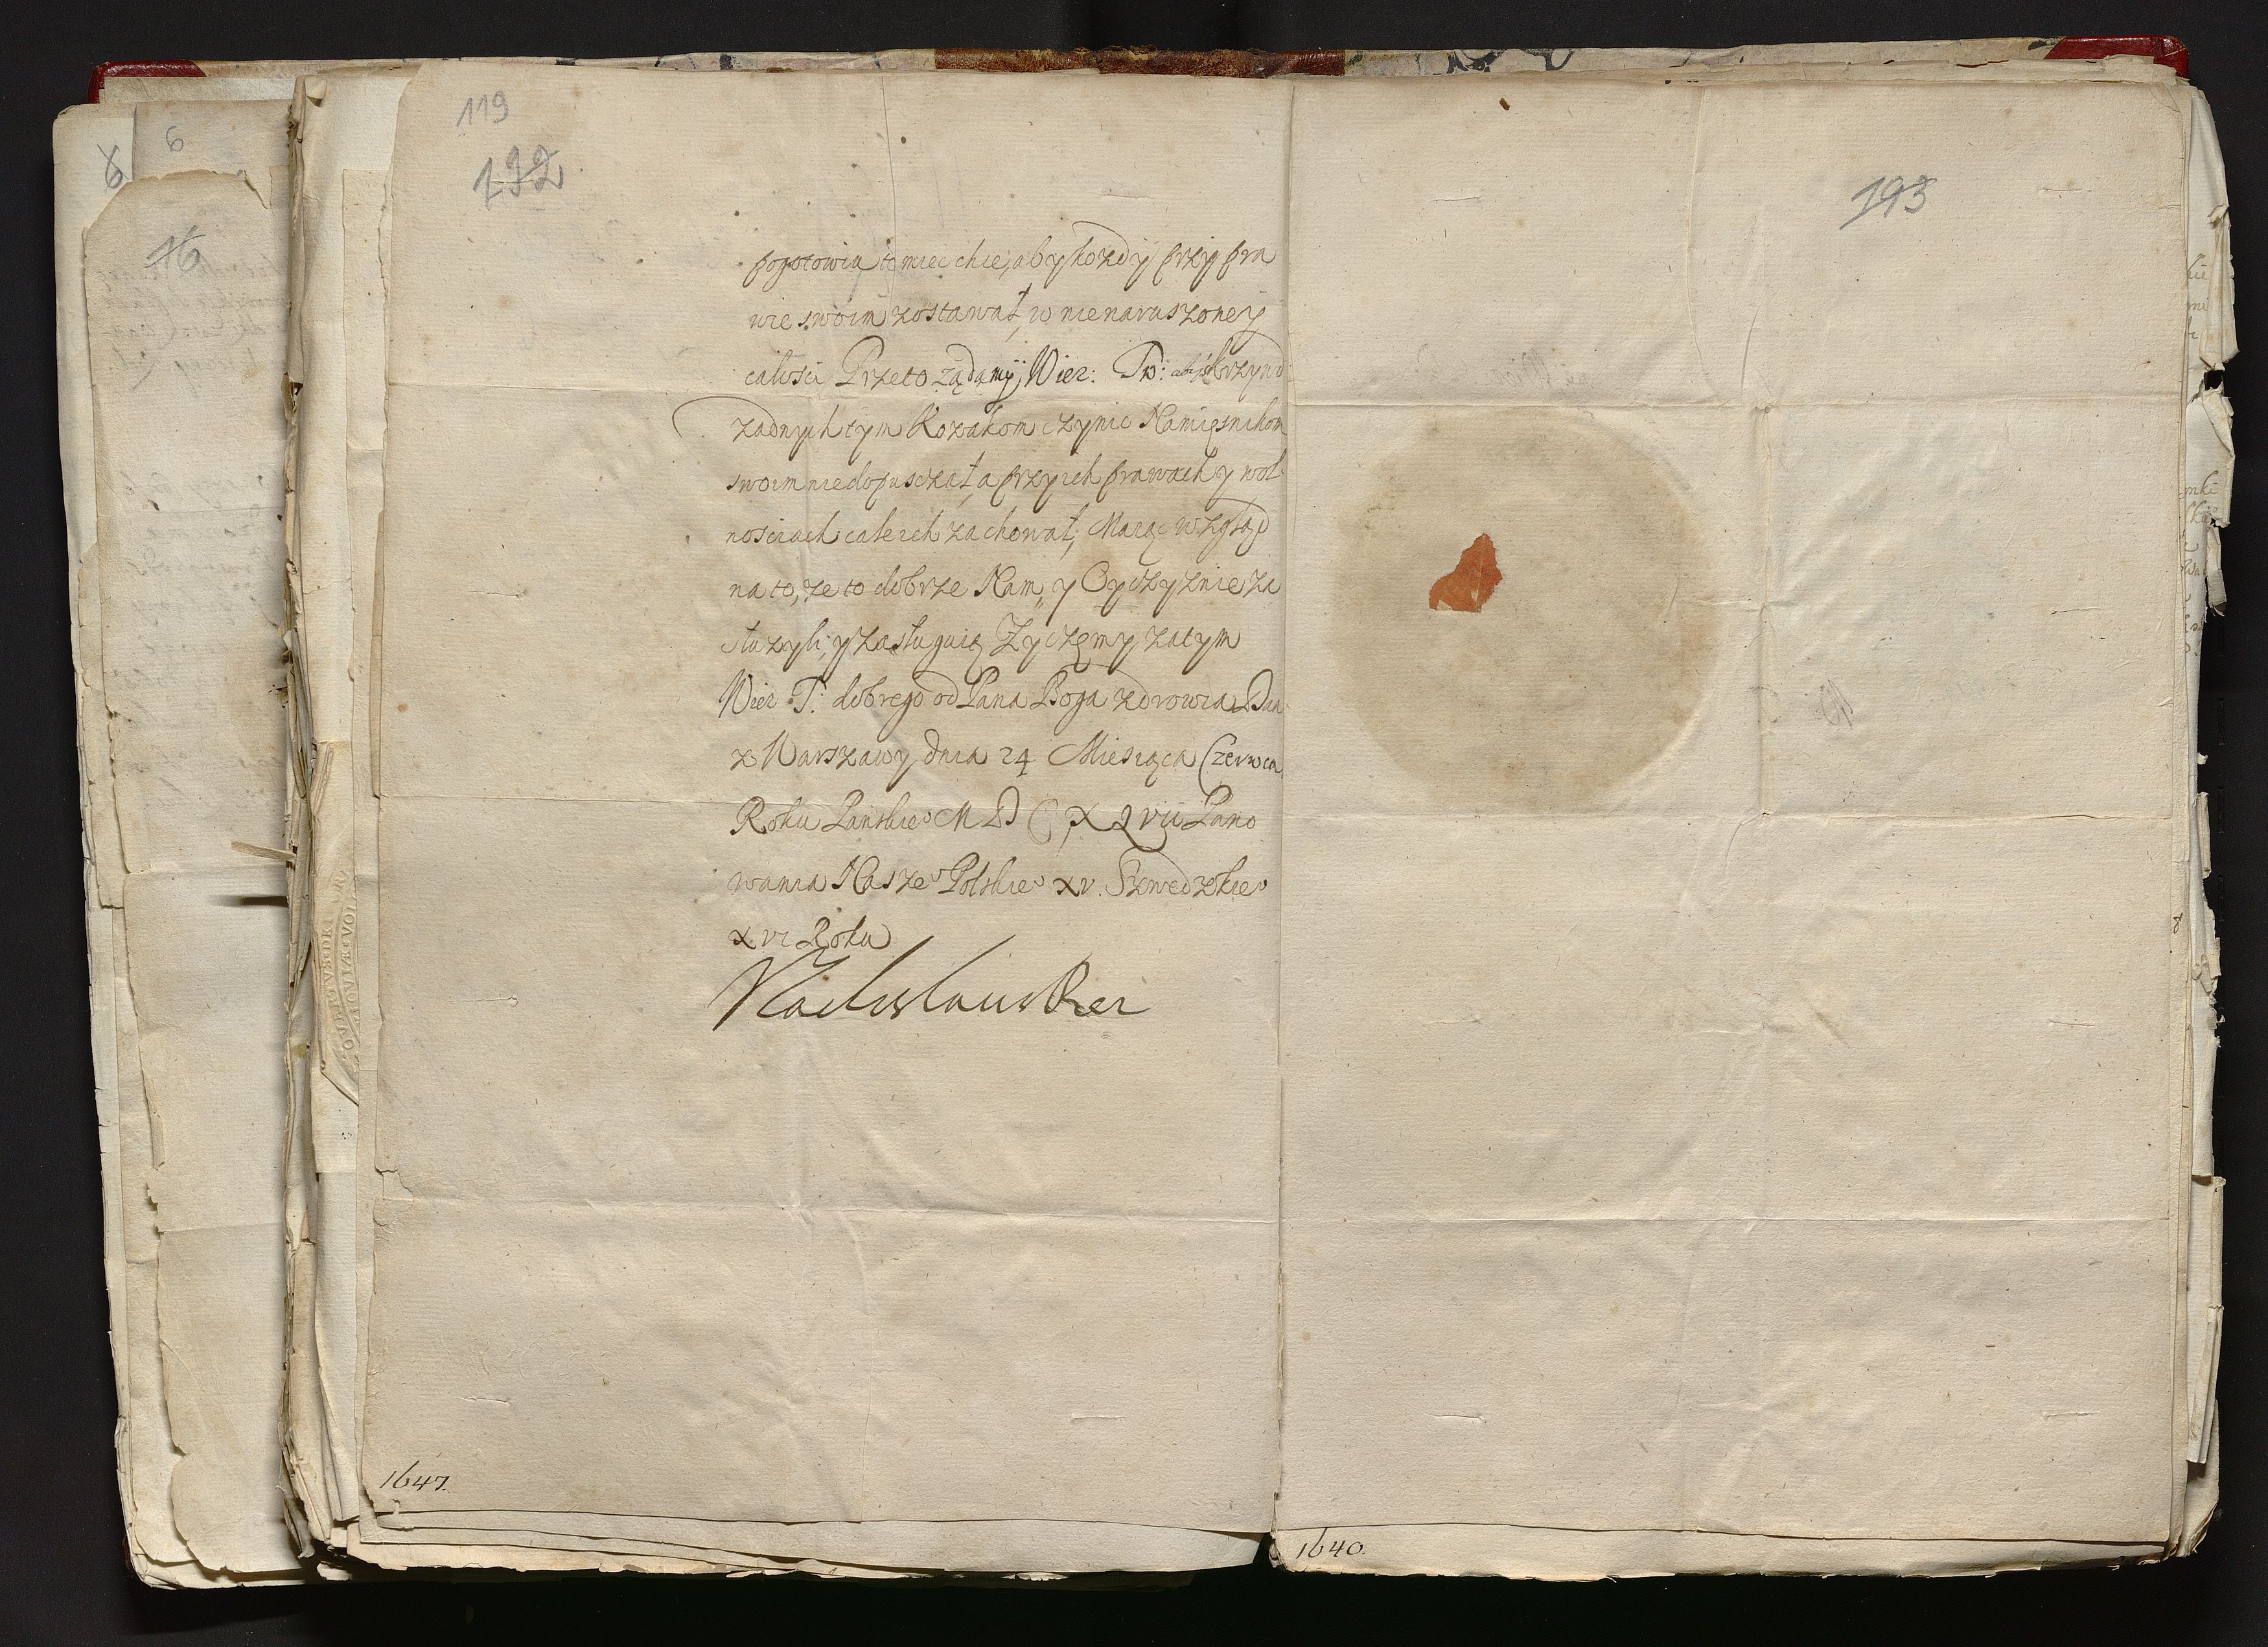 119
192
193
6
6
16
pogotowiu to miec chce, aby kozdy przy pra
wie swoim zostawał, w nienaruszoney
całosci Przeto ządamy, Wier: Tw: aby krzywd
zadnych tym Kozakom czynic Namięsnikom
swoim niedopusczał, a przy ich prawach y wol
nosciach całe ich zachował, Maiąc wzgląd
na to, ze to dobrze Nam, y Oyczyznie za
słuzyli, y zasługuią Zyczęmy zatym
Wier T: dobrego od Pana Boga zdrowia Dan
z Warszawy dnia 24 Miesiąca Czerwca
Roku Panskie° M D C XLVII Pano
wania Nasze° Polskie° XV. Szwedzkie°
XVI Roku
Vladislaus Rex
1647.
1640.